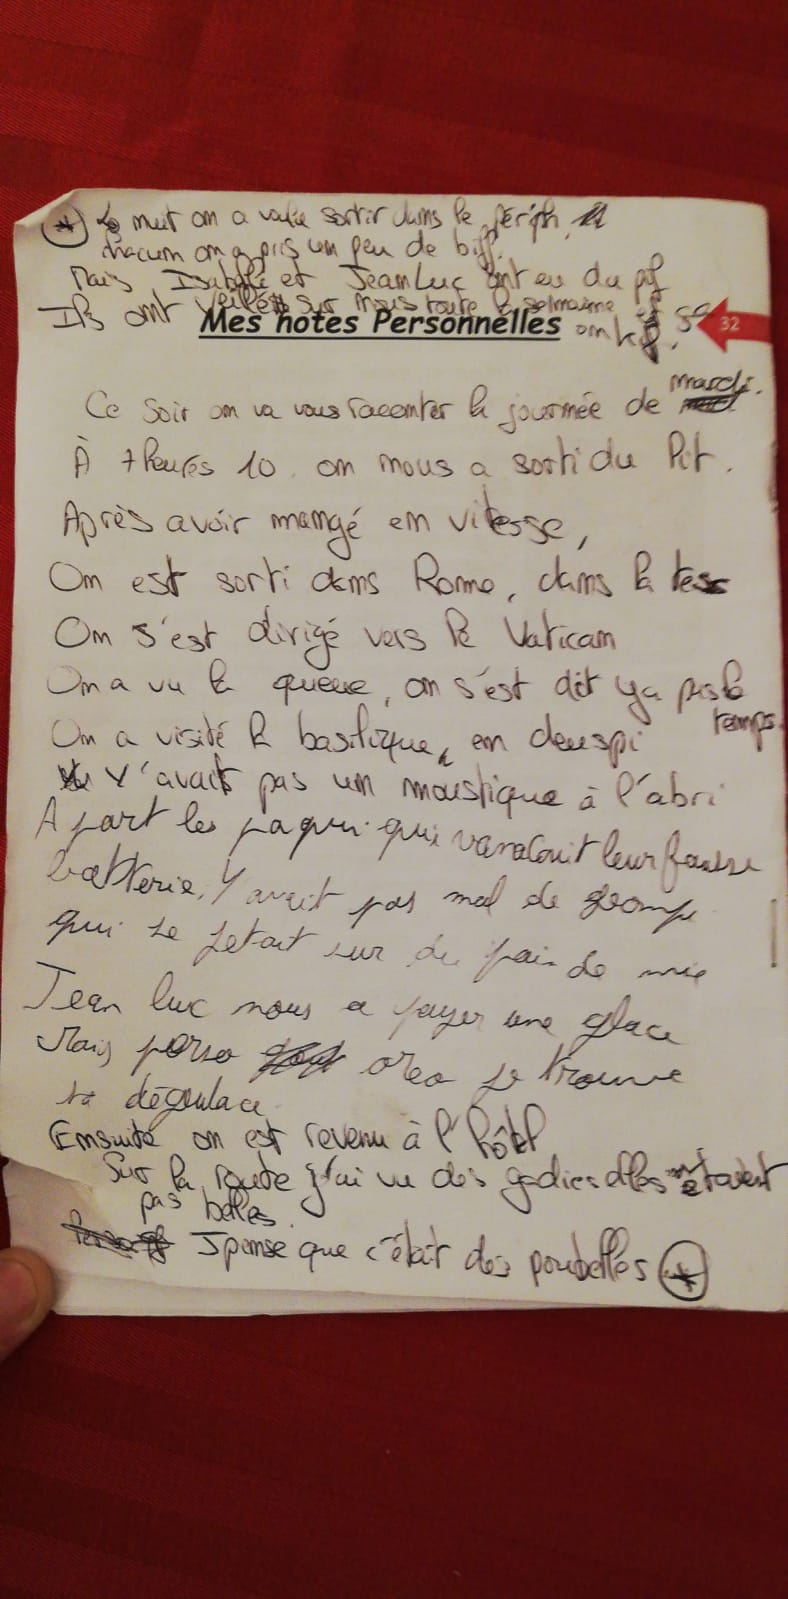 * La nuit on a voulu sortir dans le périph
chacun on a pris un peu de biff.
Mais Isabelle et Jean Luc ont eu du pif
Ils ont veillé sur nous toute la semaine et
Mes notes Personnelles on kif. 32
Ce soir on va vous raconter la journée de mardi.
À 7 heures 10 on nous a sorti du lit.
Après avoir mangé en vitesse,
On est sorti dans Rome, dans la tess
On s'est dirigé vers le Vatican
On a vu la queue, on s'est dit y a pas le temps.
On a visité la basilique, en deuspi
Y'avait pas un moustique à l'abri
A part les qui leur fausse
batterie. Y avait pas mal de
qui se jetait sur du pain de mie
Jean luc nous a payer une glace
Mais perso oreo je trouve
sa dégeulace
Ensuite on est revenu à l'hôtel
Sur la route j'ai vu des elles étaient
pas belles.
J pense que c'était des poubelles *